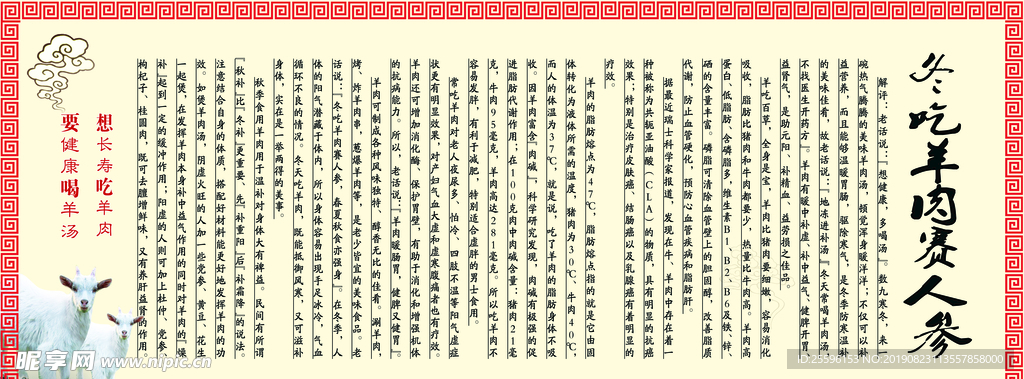 冬吃羊肉赛人参
解评：老话说：“想健康，多喝汤”。数九寒冬，来一
碗热气腾腾的美味羊肉汤，顿觉浑身暖洋洋，不仅可以补
益营养，而且能够温暖胃肠，驱除寒气，是冬季防寒温补
的美味佳肴，故老话说：“地冻进补汤”“冬天常喝羊肉汤，
不找医生开药方”。羊肉有暖中补虚、补中益气、健脾开胃、
益肾气，是助元阳、补精血、益劳损之佳品。
羊吃百草，全身是宝，羊肉比猪肉要细嫩，容易消化
吸收，脂肪比猪肉和牛肉都要少，热量比牛肉高。羊肉高
蛋白、低脂肪、含磷脂多，维生素B1、B2、B6及铁、锌、
硒的含量丰富。磷脂可清除血管壁上的胆固醇，改善脂质
代谢，防止血管硬化，预防心血管疾病和脂肪肝。
据最近瑞士科学家报道，发现在牛、羊肉中存在着一
种被称为共轭亚油酸（CLA）的物质，具有明显的抗癌
效果，特别是治疗皮肤癌、结肠癌以及乳腺癌有着明显的
疗效。
羊肉的脂肪熔点为47℃，脂肪熔点指的就是它由固
体转化为液体所需的温度，猪肉为30℃、牛肉40℃，
而人的体温为37℃，就是说，吃了羊肉的脂肪身体不吸
收。因羊肉富含“肉碱”，科学研究发现，肉碱有极强的促
进脂肪代谢作用；在100克肉中肉碱含量：猪肉21毫
克，牛肉95毫克，羊肉高达281毫克。所以吃羊肉不
容易发胖，有利于减肥，特别适合虚胖的男士食用。
常吃羊肉对老人夜尿多、怕冷、四肢不温等阳气虚症
状更有明显效果，对产妇气血大虚和虚寒腹痛者也有疗效。
羊肉还可增加消化酶、保护胃壁，有助于消化和增强机体
的抗病能力。所以，老话说：“羊肉暖肠胃，健脾又健胃”。
羊肉可制成各种风味独特、醇香无比的佳肴。涮羊肉、
烤、炸羊肉串，葱爆羊肉等，是老少皆宜的美味食品。老
话说：“冬吃羊肉赛人参，春夏秋食亦强身”。在冬季，人
体的阳气潜藏于体内，所以身体容易出现手足冰冷，气血
循环不良的情况。冬天吃羊肉，既能抵御风寒，又可滋补
身体，实在是一举两得的美事。
秋季食用羊肉用于温补对身体大有裨益。民间有所谓
“秋补”比“冬补”更重要、先“补重阳”后“补霜降”的说法。
注意结合自身的体质，搭配好材料能更好地发挥羊肉的功
效。如煲羊肉汤，阴虚火旺的人加一些党参、黄豆、花生
一起煲，在发挥羊肉本身补中益气作用的同时对羊肉的“燥
补”起到一定的缓冲作用；阳虚的人则可加上杜仲、党参、
枸杞子、桂圆肉，既可去膻增鲜味，又有养肝益肾的作用
想长寿吃羊肉
要健康喝羊汤
昵享网 www.nipic.cn
ID:25596153 NO:20190823113557858000